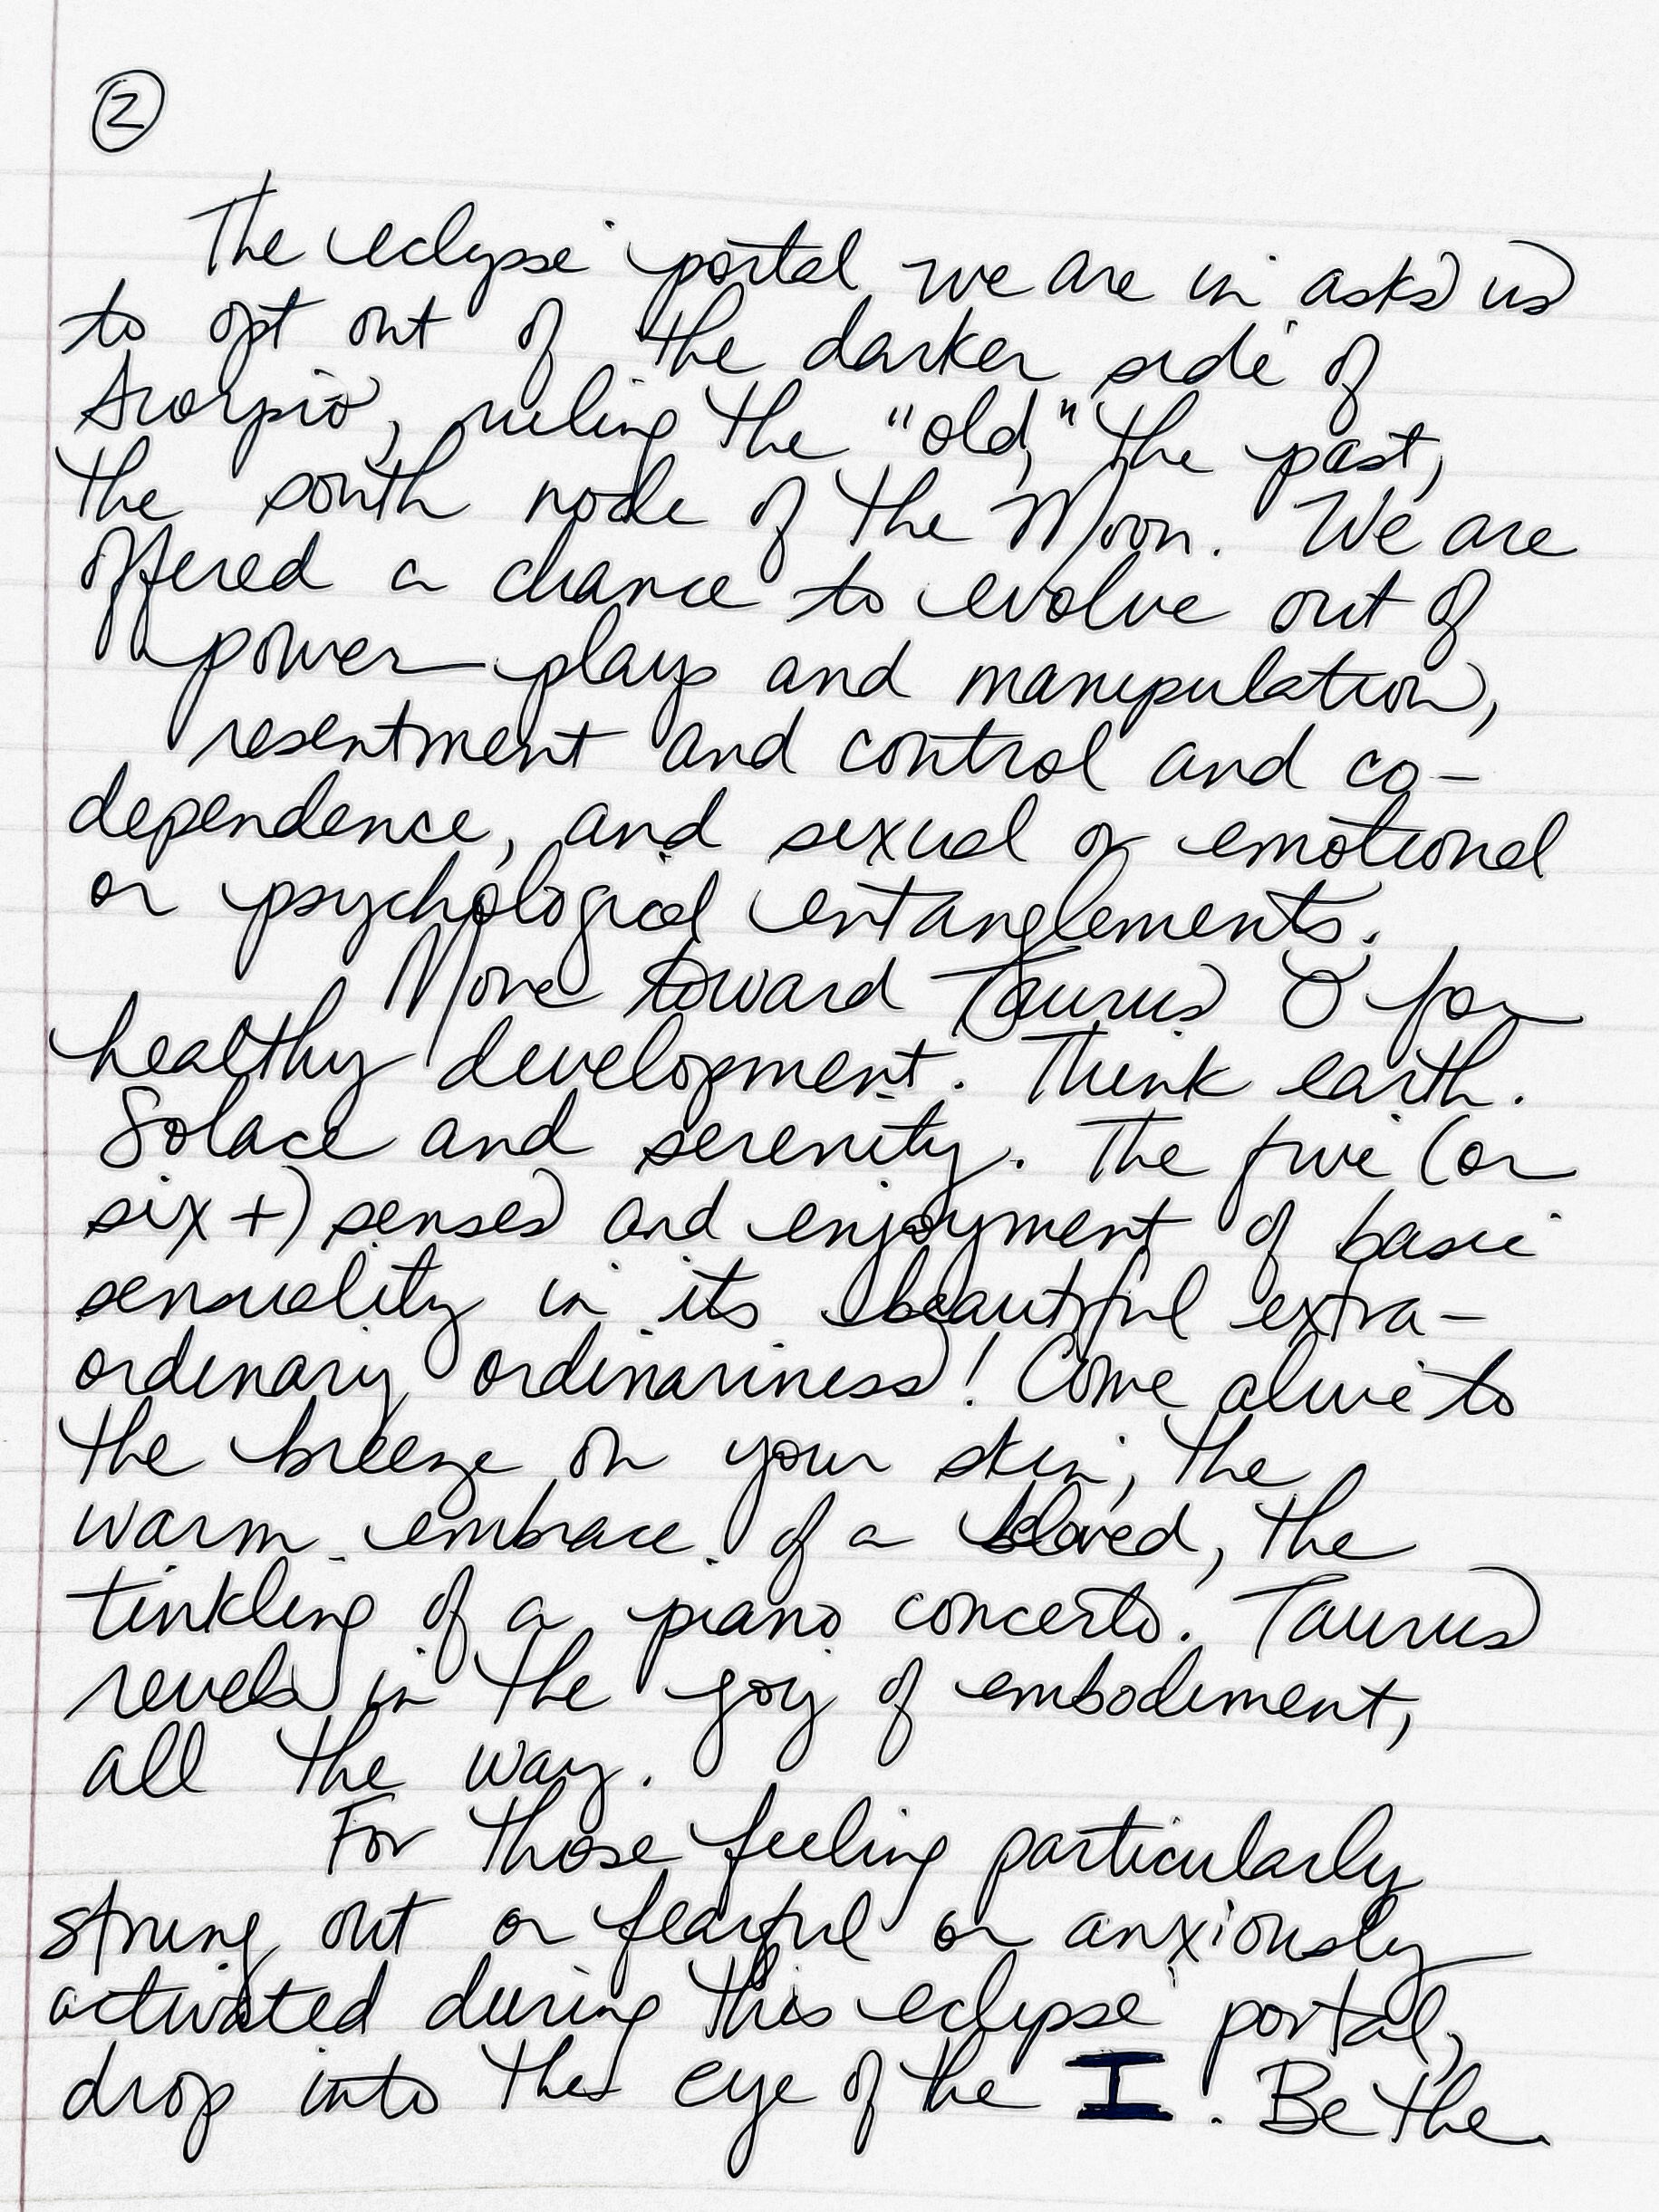 ②
The eclipse portal we are in asks us
to opt out of the darker side of
Scorpio, ruling the "old," the past,
the south node of the Moon. We are
offered a chance to evolve out of
power plays and manipulation,
resentment and control and co-
dependence, and sexual or emotional
or psychological entanglements.
Move toward Taurus ♉ for
healthy development. Think earth.
Solace and serenity. The five (or
six +) senses and enjoyment of basic
sensuality in its beautiful extra-
ordinary ordinariness! Come alive to
the breeze on your skin, the
warm embrace of a beloved, the
tinkling of a piano concerto. Taurus
revels in the joy of embodiment,
all the way.
For those feeling particularly
strung out or fearful or anxiously
activated during this eclipse portal,
drop into the eye of the I. Be the